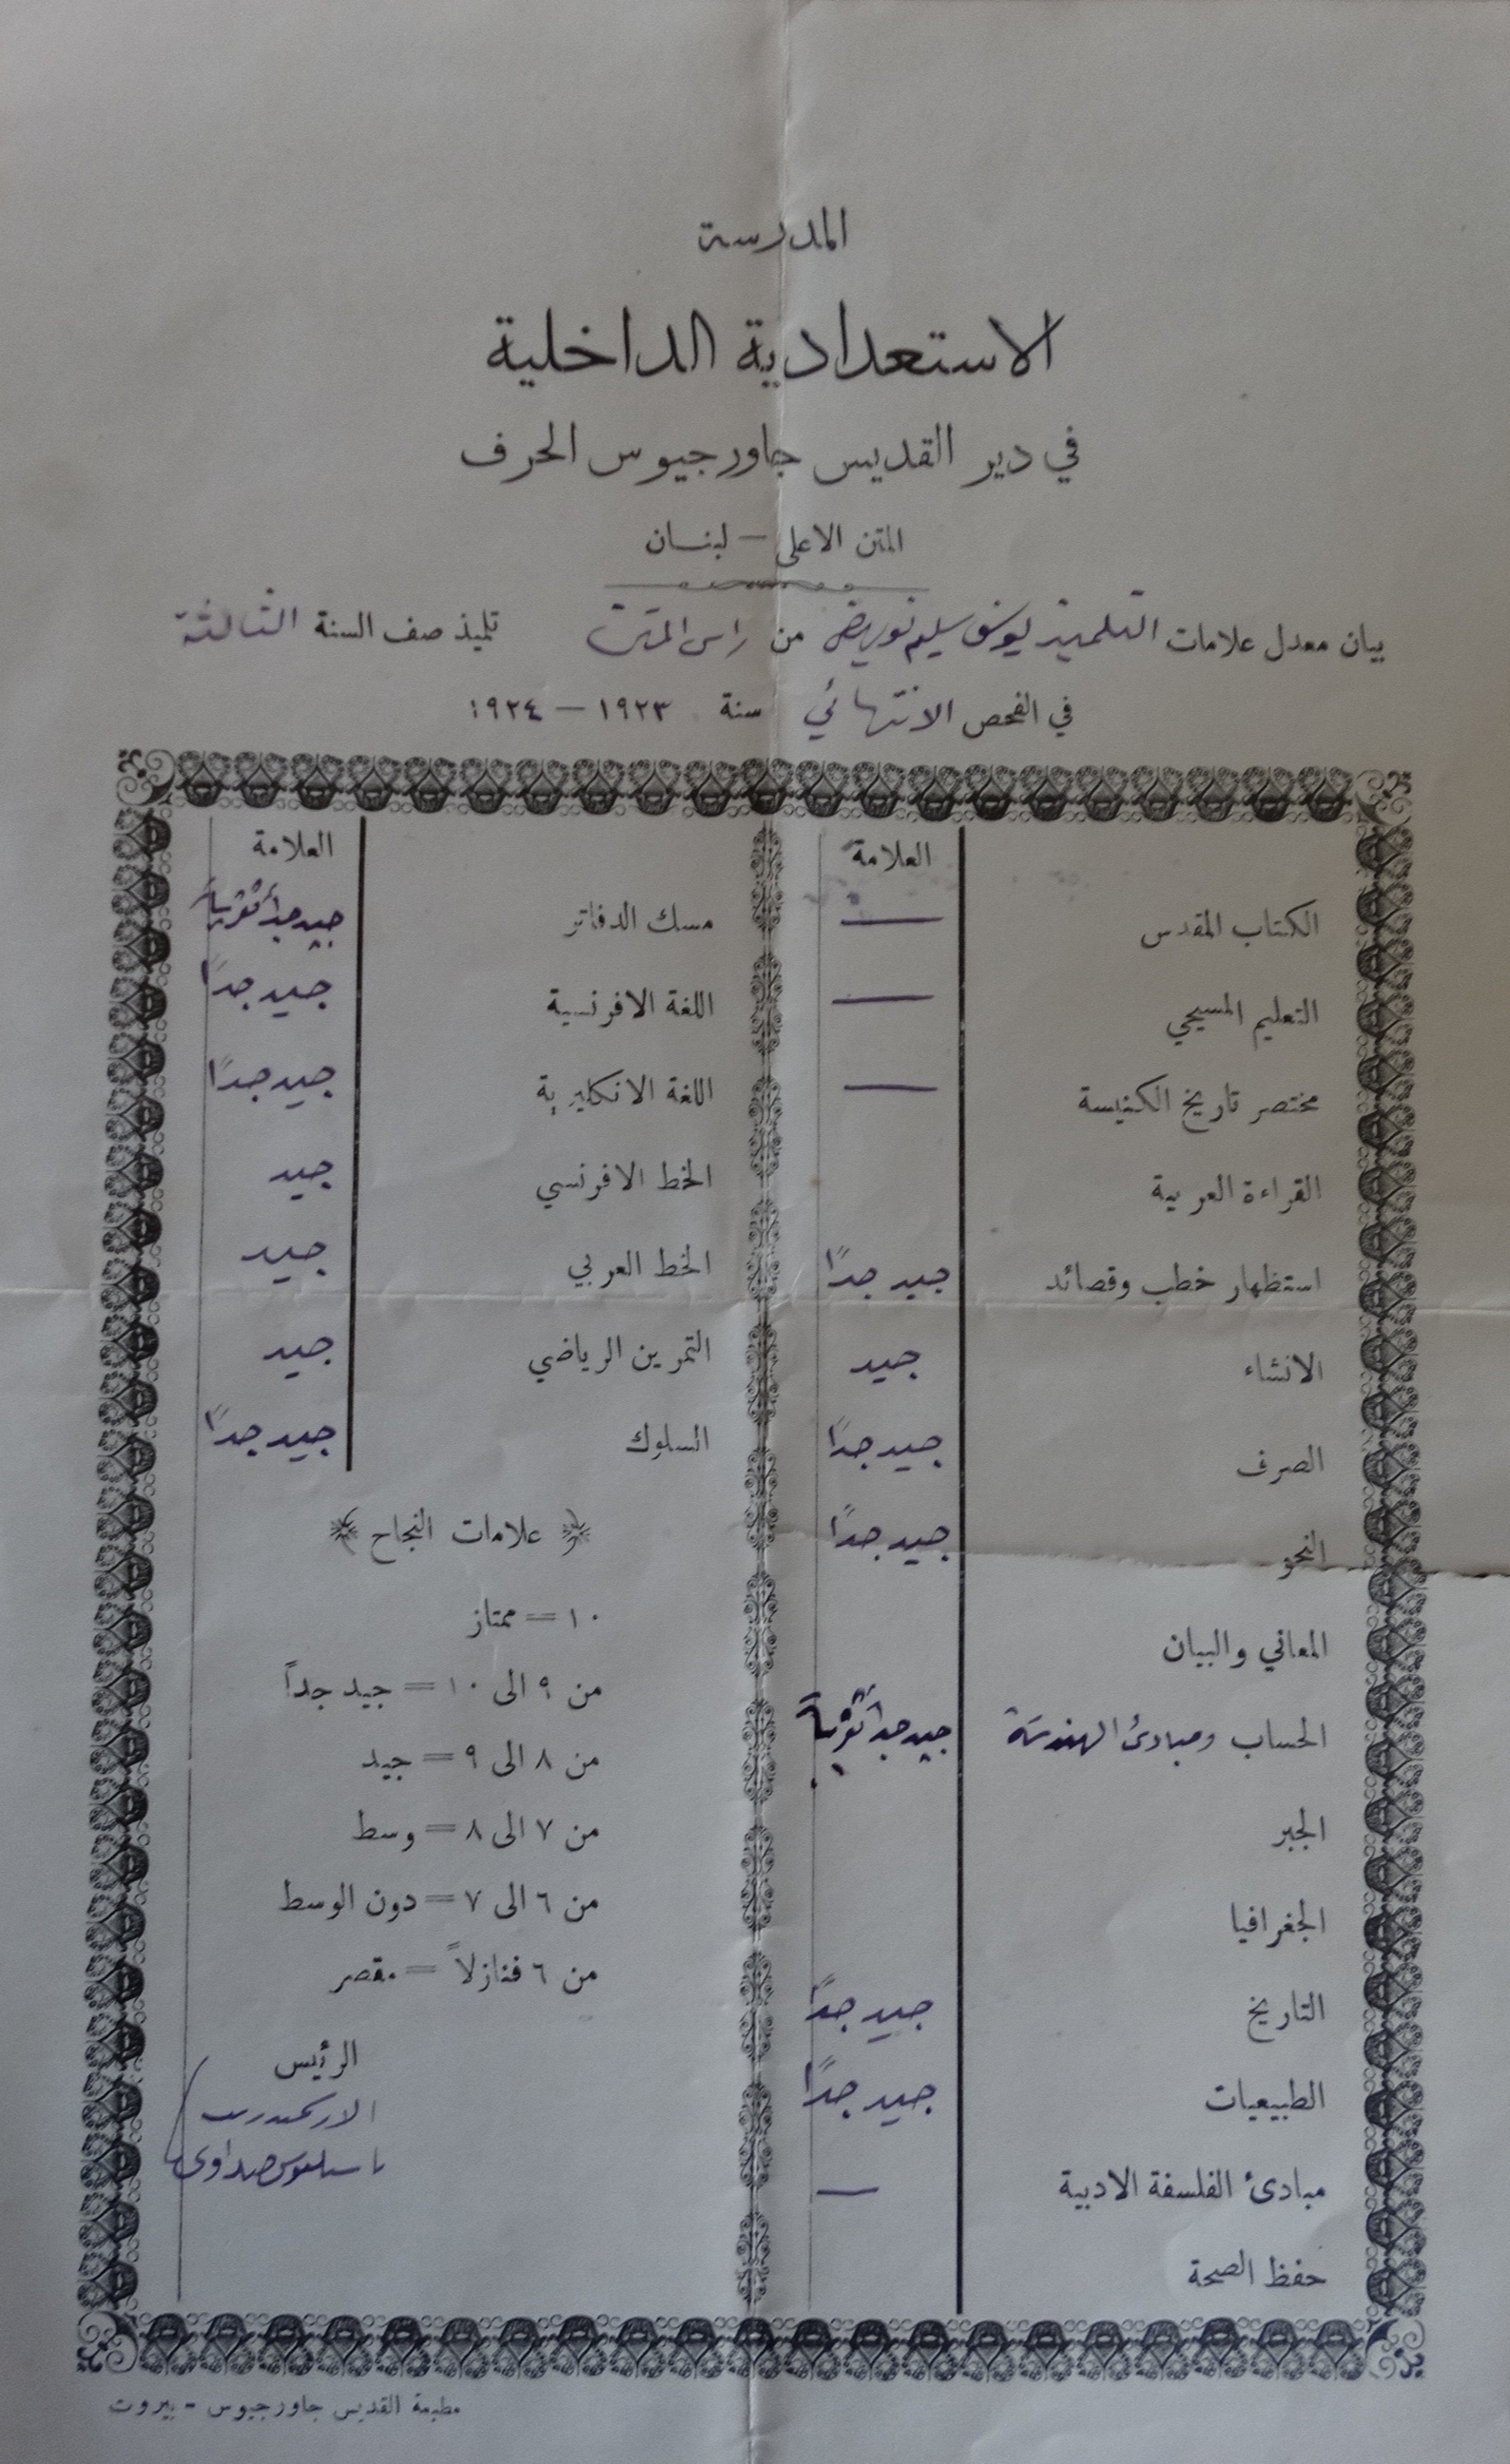 المدرسة
الاستعدادية الداخلية
في دير القديس جاورجيوس الحرف
المتن الاعلى — لبنان
بيان معدل علامات التلميذ يوسف سليم نويهض من راس المتن تلميذ صف السنة الثالثة
في الفحص الانتهائي سنة ١٩٢٣ — ١٩٢٤
العلامة
الكتاب المقدس —
التعليم المسيحي —
مختصر تاريخ الكنيسة —
القراءة العربية
استظهار خطب وقصائد جيد جدًا
الانشاء جيد
الصرف جيد جدًا
النحو جيد جدًا
المعاني والبيان
الحساب ومبادئ الهندسة جيد جداً تقريباً
الجبر
الجغرافيا
التاريخ جيد جدًا
الطبيعيات جيد جدًا
مبادئ الفلسفة الادبية —
حفظ الصحة
العلامة
مسك الدفاتر جيد جداً تقريباً
اللغة الافرنسية جيد جدًا
اللغة الانكليزية جيد جدًا
الخط الافرنسي جيد
الخط العربي جيد
التمرين الرياضي جيد
السلوك جيد جدًا
علامات النجاح
١٠ = ممتاز
من ٩ الى ١٠ = جيد جداً
من ٨ الى ٩ = جيد
من ٧ الى ٨ = وسط
من ٦ الى ٧ = دون الوسط
من ٦ فنازلاً = مقصر
الرئيس
الارشمندريت
باسيليوس صيداوي
مطبعة القديس جاورجيوس - بيروت